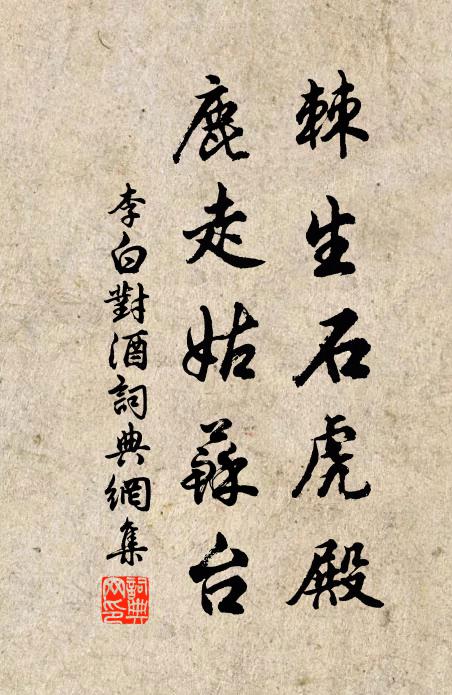 棘生石虎殿
鹿走姑蘇台
李白對酒詞典網集
詞典
网印